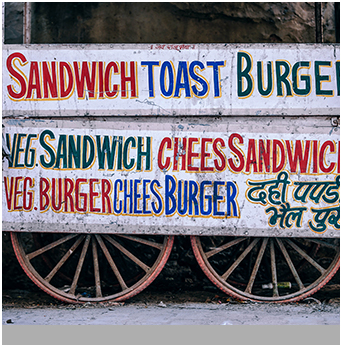 SANDWICH TOAST BURGE
VEG. SANDWICH CHEES SANDWIC
VEG. BURGER CHEES BURGER दही पपडी
भेल पुरी